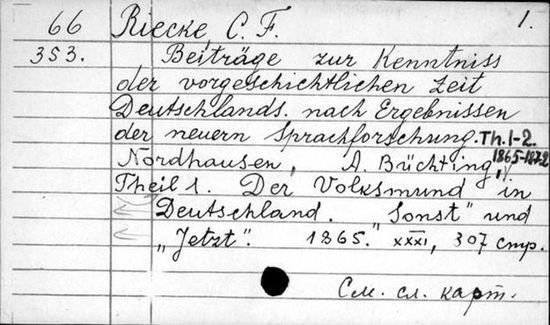 66 Riecke, C. F. 1.
353. Beiträge zur Kenntniss
der vorgeschichtlichen Zeit
Deutschlands. nach Ergebnissen
der neuern Sprachforschung. Th. 1-2.
Nordhausen, A. Büchting, 1865-1872
Theil 1. Der Volksmund in
Deutschland. "Sonst" und
„Jetzt". 1865. XXXI, 307 стр.
См. сл. карт.